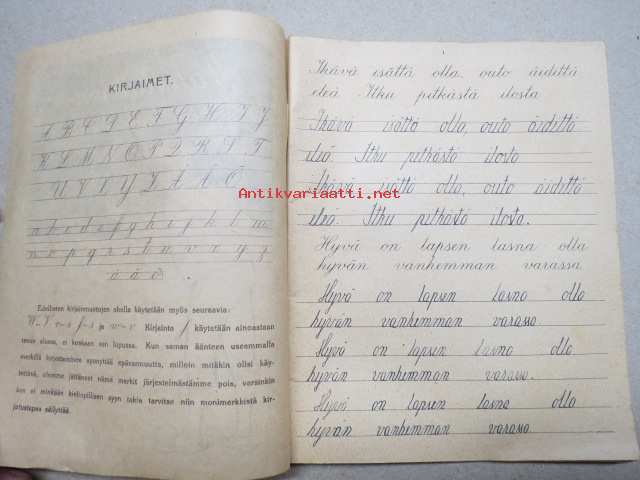 KIRJAIMET.
A B C D E F G H I J
K L M N O P Q R S T
U V X Y Z Å Ä Ö
a b c d e f g h i j k l m
n o p q r s t u v x y z
å ä ö
Edellisten kirjainmuotojen ohella käytetään myös seuraavia:
ja Kirjainta f käytetään ainoastaan
sanan alussa, ei koskaan sen lopussa. Kun saman äänteen useammalla
merkillä kirjoittaminen synnyttää epävarmuutta, milloin mitäkin olisi käy-
tettävä, olemme jättäneet nämä merkit järjestelmästämme pois, varsinkin
kun ei minkään kieliopillisen syyn takia tarvitse niin monimerkkistä kir-
joitustapaa säilyttää.
Ikävä isättä olla, outo äidittä
eleä. Itku pitkästä ilosta
Ikävä isättä olla, outo äidittä
eleä. Itku pitkästä ilosta
Ikävä isättä olla, outo äidittä
eleä. Itku pitkästä ilosta.
Hyvä on lapsen lasna olla
hyvän vanhemman varassa
Hyvä on lapsen lasna olla
hyvän vanhemman varassa
Hyvä on lapsen lasna olla
hyvän vanhemman varassa.
Hyvä on lapsen lasna olla
hyvän vanhemman varassa
Antikvariaatti.net